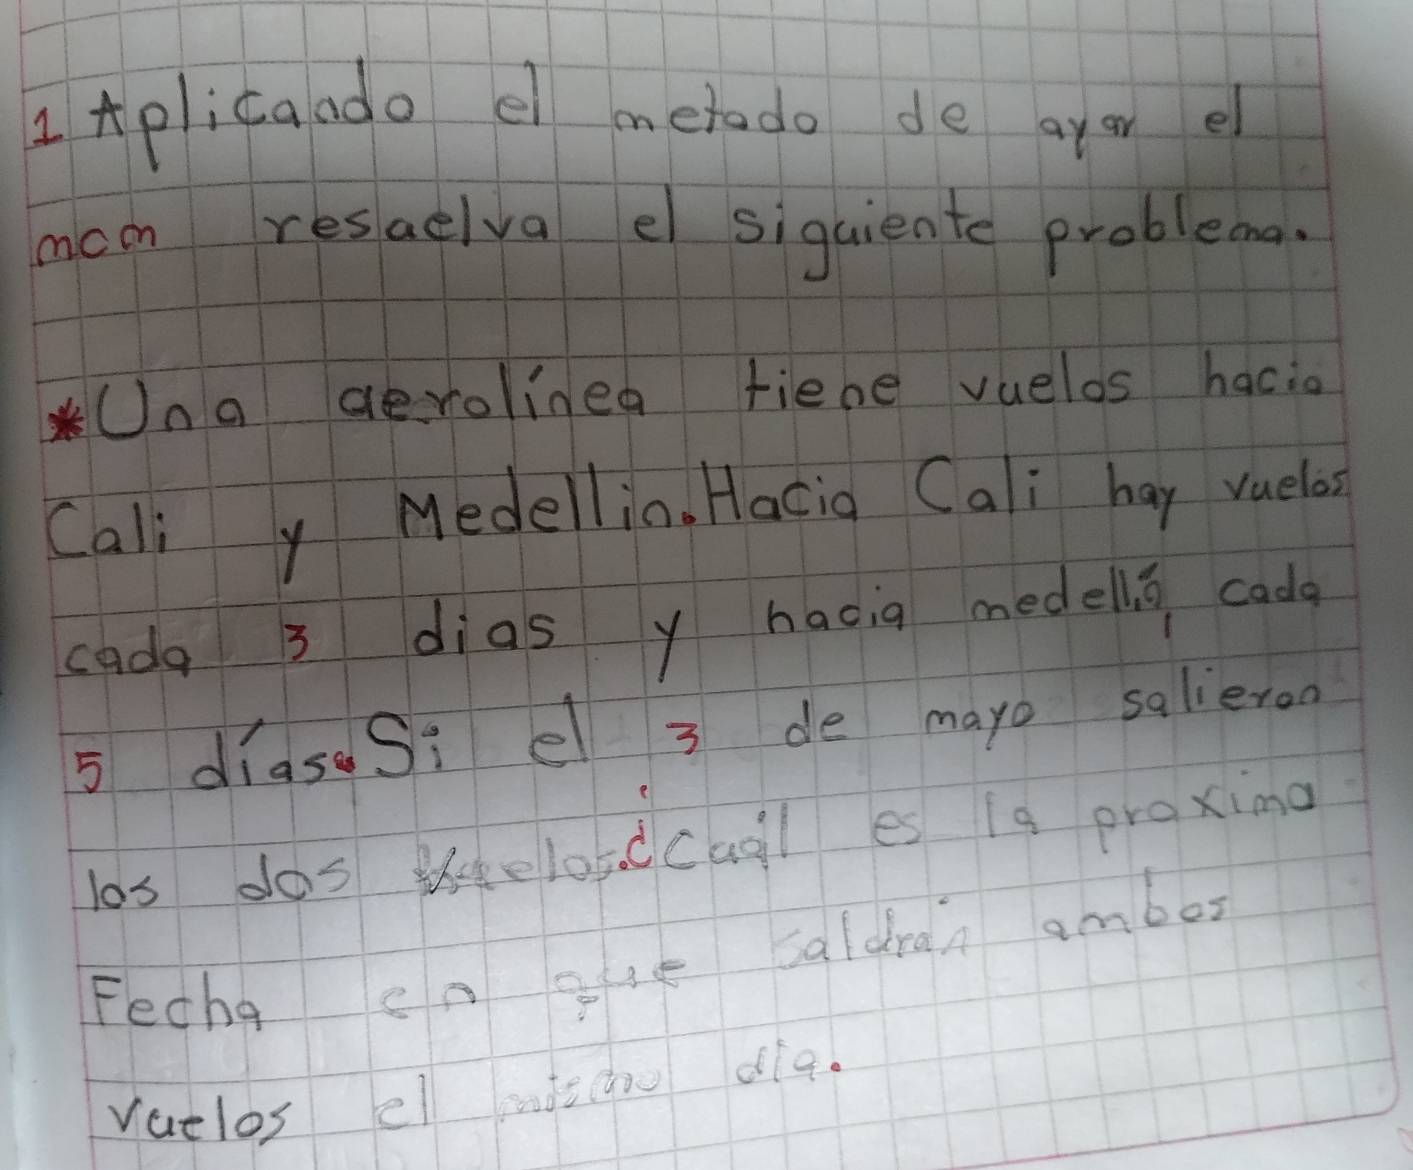 1 Aplicando el metodo de ayar el
mcm resuelva el siguiente problema.
*Una aerolínea tiene vuelos hacia
Cali y Medellin. Hacia Cali hay vuelos
cada 3 dias y hacia medellín cada
5 días. Si el 3 de mayo salieron
los dos vuelos. ¿Cuál es la proxima
Fecha en que saldrán ambos
vuelos el mismo dia.